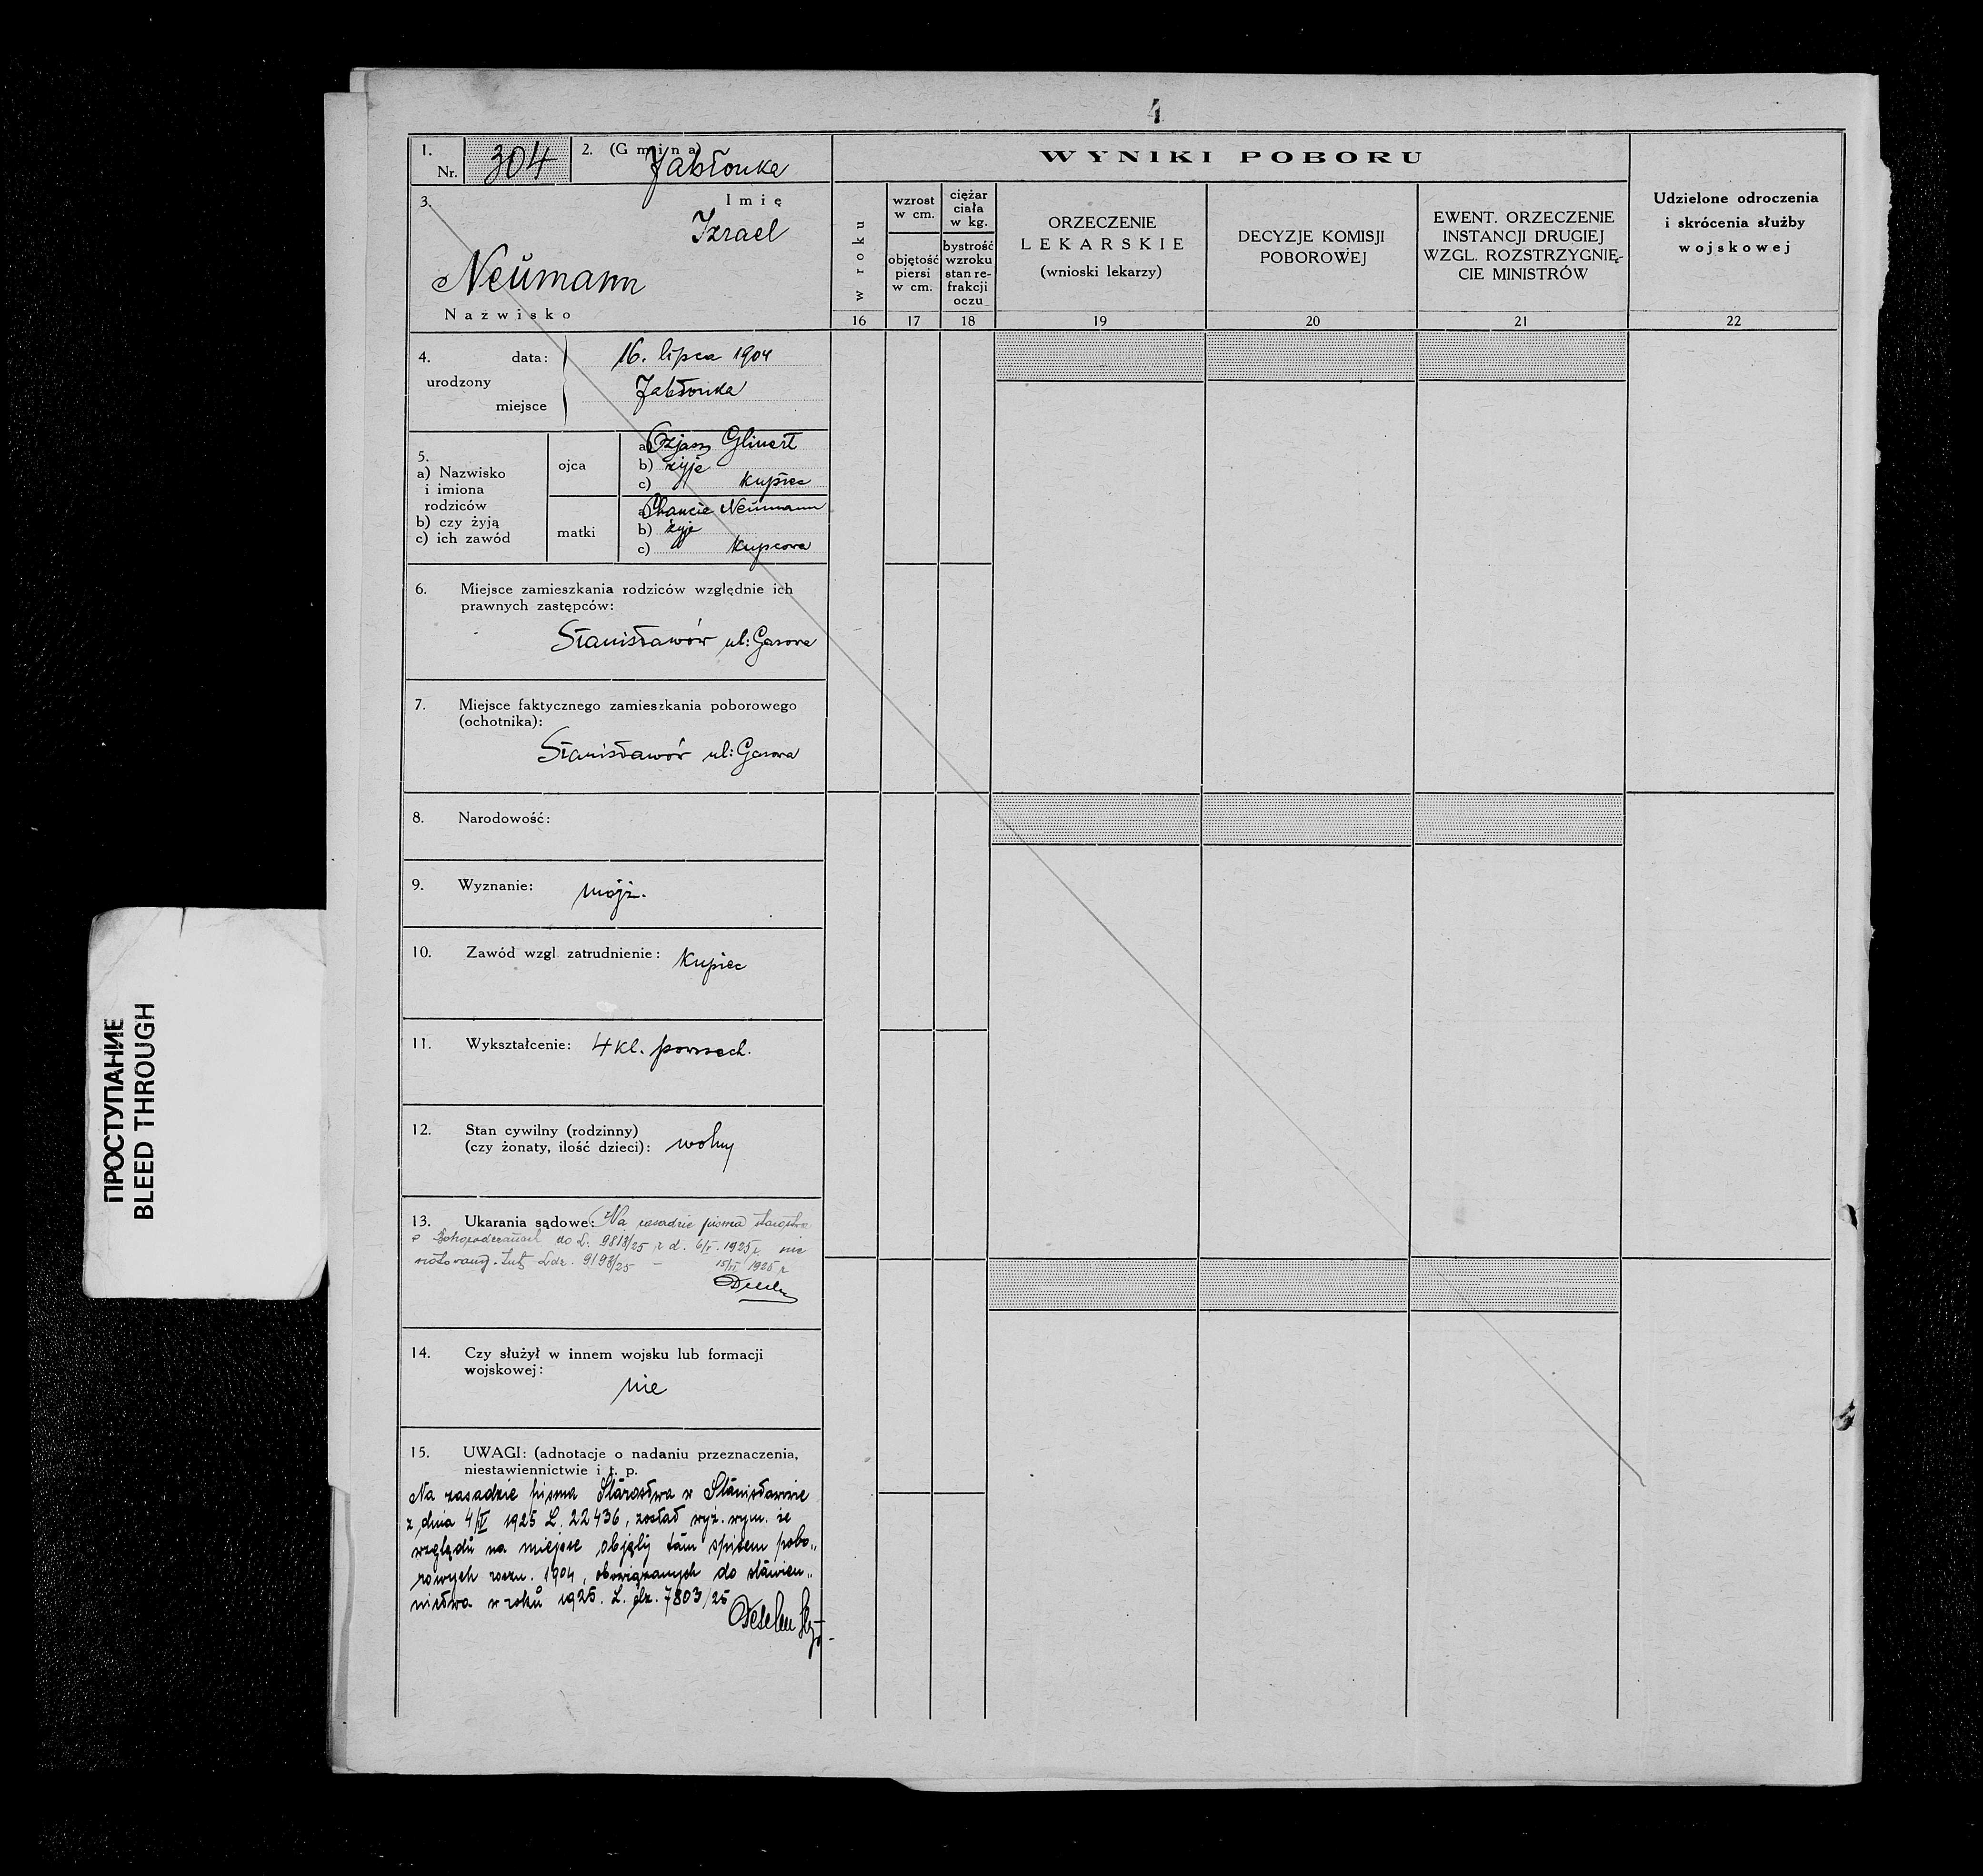 4
1. Nr. 304
2. (Gmina) Jabłonka
3. Imię
Izrael
Neumann
Nazwisko
4. urodzony
data: 16. lipca 1904
miejsce Jabłonka
5.
a) Nazwisko
i imiona
rodziców
b) czy żyją
c) ich zawód
ojca
a) Ozjasz Glinert
b) żyje
c) kupiec
matki
a) Neumann
b) żyje
c) kupcowa
6. Miejsce zamieszkania rodziców względnie ich
prawnych zastępców:
Stanisławów ul:
7. Miejsce faktycznego zamieszkania poborowego
(ochotnika):
Stanisławów ul:
8. Narodowość:
9. Wyznanie: mojż.
10. Zawód wzgl zatrudnienie: Kupiec
11. Wykształcenie: 4 kl. powszech.
12. Stan cywilny (rodzinny)
(czy żonaty, ilość dzieci): wolny
13. Ukarania sądowe: Na zasadzie pisma starostwa
w Bohorodczanach do L. 9818/25 z d. 6/V. 1925 r. nie
notowany. Ldz. 9198/25 – 15/VI 1925 r
14. Czy służył w innem wojsku lub formacji
wojskowej:
nie
15. UWAGI: (adnotacje o nadaniu przeznaczenia,
niestawiennictwie i t. p.
Na zasadzie pisma Starostwa w Stanisławowie
z dnia 4/IV 1925 L. 22436, został wyż. wym. ze
względu na miejsce objęty tam spisem pobo„
rowych roczn. 1904, obowiązanych do stawien„
nictwa w roku 1925. L. dz. 7803/25
WYNIKI POBORU
w roku
16
wzrost
w cm.
objętość
piersi
w cm.
17
ciężar
ciała
w kg.
bystrość
wzroku
stan re-
frakcji
oczu
18
ORZECZENIE
LEKARSKIE
(wnioski lekarzy)
19
DECYZJE KOMISJI
POBOROWEJ
20
EWENT. ORZECZENIE
INSTANCJI DRUGIEJ
WZGL. ROZSTRZYGNIĘ-
CIE MINISTRÓW
21
Udzielone odroczenia
i skrócenia służby
wojskowej
22
ПРОСТУПАНИЕ
BLEED THROUGH